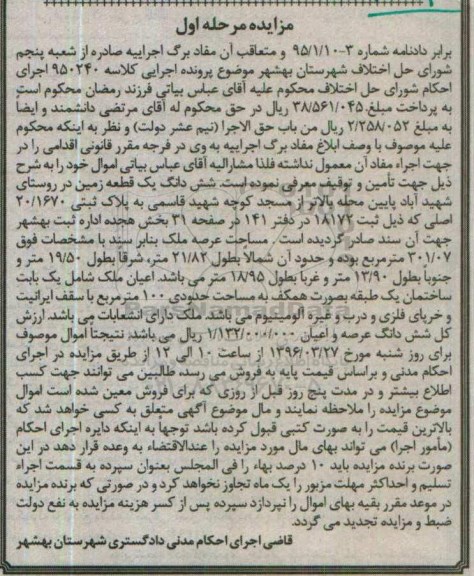 مزایده مرحله اول
برابر دادنامه شماره ۳-۹۵/۱/۱۰ و متعاقب آن مفاد برگ اجراییه صادره از شعبه پنجم
شورای حل اختلاف شهرستان بهشهر موضوع پرونده اجرایی کلاسه ۹۵۰۲۴۰ اجرای
احکام شورای حل اختلاف محکوم علیه آقای عباس بیاتی فرزند رمضان محکوم است
به پرداخت مبلغ ۳۸/۵۶۱/۰۴۵ ریال در حق محکوم له آقای مرتضی دانشمند و ایضا
به مبلغ ۲/۲۵۸/۰۵۲ ریال من باب حق الاجرا (نیم عشر دولت) و نظر به اینکه محکوم
علیه موصوف با وصف ابلاغ مفاد برگ اجراییه به وی در فرجه مقرر قانونی اقدامی را در
جهت اجراء مفاد آن معمول نداشته فلذا مشارالیه آقای عباس بیاتی اموال خود را به شرح
ذیل جهت تأمین و توقیف معرفی نموده است. شش دانگ یک قطعه زمین در روستای
شهید آباد پایین محله بالاتر از مسجد کوچه شهید قاسمی به پلاک ثبتی ۲۰/۱۶۷۰
اصلی که ذیل ثبت ۱۸۱۷۲ در دفتر ۱۴۱ در صفحه ۳۱ بخش هجده اداره ثبت بهشهر
جهت آن سند صادر گردیده است. مساحت عرصه ملک بنابر سند با مشخصات فوق
۳۰۱/۰۷ مترمربع بوده و حدود آن شمالا بطول ۲۱/۸۲ متر، شرقا بطول ۱۹/۵۰ متر و
جنوبا بطول ۱۳/۹۰ متر و غربا بطول ۱۸/۹۵ متر می باشد. اعیان ملک شامل یک بابت
ساختمان یک طبقه بصورت همکف به مساحت حدودی ۱۰۰ مترمربع با سقف ایرانیت
و خرپای فلزی و درب و غیره آلومینیوم می باشد. ملک دارای انشعابات می باشد. ارزش
کل شش دانگ عرصه و اعیان ۱/۱۳۲/۰۰۰/۰۰۰ ریال می باشد. نتیجتا اموال موصوف
برای روز شنبه مورخ ۱۳۹۶/۰۳/۲۷ از ساعت ۱۰ الی ۱۲ از طریق مزایده در اجرای
احکام مدنی و براساس قیمت پایه به فروش می رسد، طالبین می توانند جهت کسب
اطلاع بیشتر و در مدت پنج روز قبل از روزی که برای فروش معین شده است اموال
موضوع مزایده را ملاحظه نمایند و مال موضوع آگهی متعلق به کسی خواهد شد که
بالاترین قیمت را به صورت کتبی قبول کرده باشد توجها به اینکه دایره اجرای احکام
(مأمور اجرا) می تواند بهای مال مورد مزایده را عندالاقتضاء به وعده قرار دهد در این
صورت برنده مزایده باید ۱۰ درصد بهاء را فی المجلس بعنوان سپرده به قسمت اجراء
تسلیم و احداکثر مهلت مزبور را یک ماه تجاوز نخواهد کرد و در صورتی که برنده مزایده
در موعد مقرر بقیه بهای اموال را نپردازد سپرده پس از کسر هزینه مزایده به نفع دولت
ضبط و مزایده تجدید می گردد.
قاضی اجرای احکام مدنی دادگستری شهرستان بهشهر